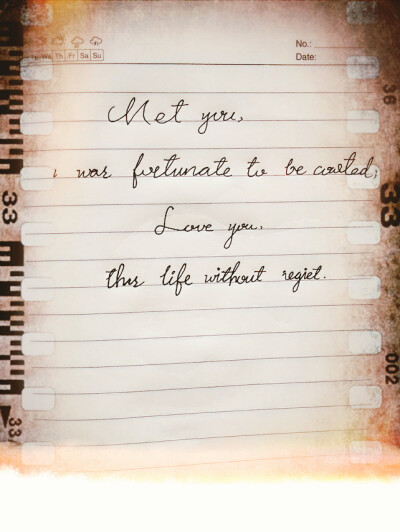 Th Fr Sa Su
No.:
Date:
Met you,
i was fortunate to be
Love you.
this life without regret.
36
33
33
002
33